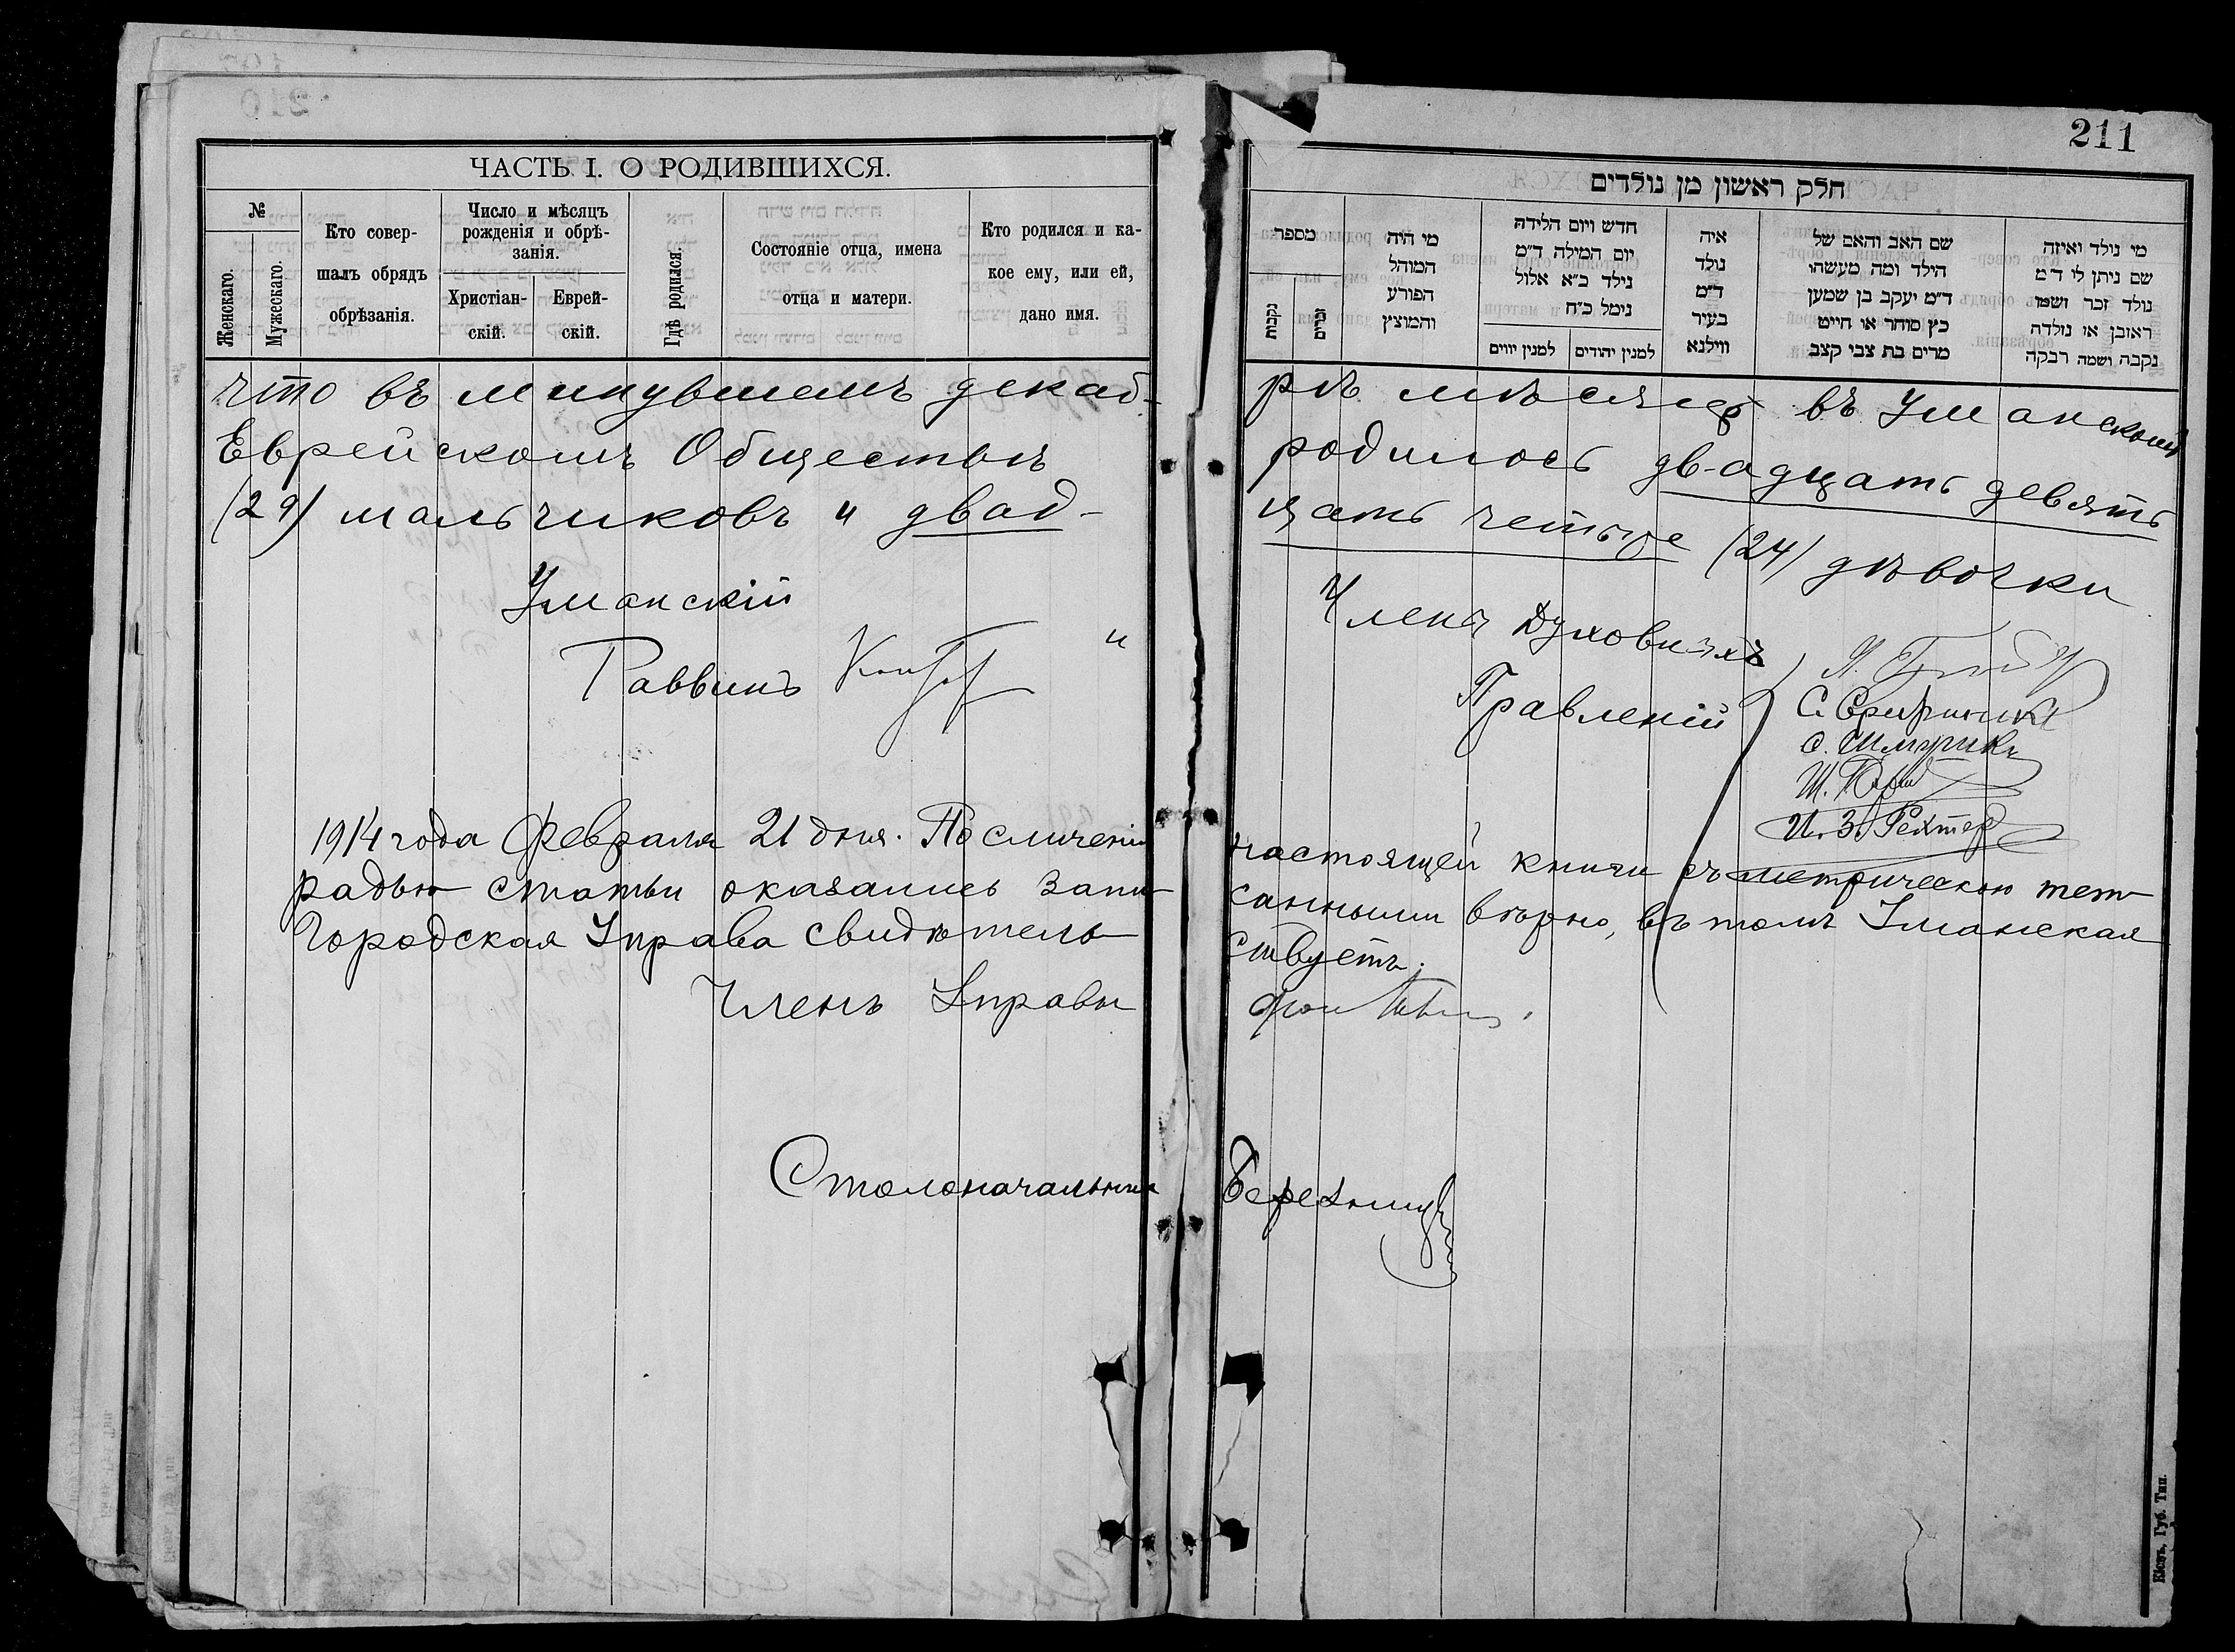 211
ЧАСТЬ I. О РОДИВШИХСЯ.
№
Женскаго.
Мужескаго.
Кто совер-
шалъ обрядъ
обрѣзанія.
Число и мѣсяцъ
рожденія и обрѣ-
занія.
Христіан-
скій.
Еврей-
скій.
Гдѣ родился.
Состояніе отца, имена
отца и матери.
Кто родился и ка-
кое ему, или ей,
дано имя.
חלק ראשון מן נולדים
מספר
נקבות
זכרים
מי היה
המוהל
הפורע
והמוצץ
חדש ויום הלידה
יום המילה ד״מ
נילד כ״א אלול
נימל כ״ח
למנין יהודים
למנין יווים
איה
נולד
ד״מ
בעיר
ווילנא
שם האב והאם של
הילד ומה מעשהו
ד״מ יעקב בן שמען
כץ סוחר או חייט
מרים בת צבי קצב
מי נולד ואיזה
שם ניתן לו ד״מ
נולד זכר ושמו
ראובן או נולדה
נקבה ושמה רבקה
что въ минувшемъ декаб- рѣ мѣсяцѣ въ Уманскомъ
Еврейскомъ Обществѣ родилось двадцать девять
(29) мальчиковъ и двад- цать четыре (24) дѣвочки
Уманскій
Раввинъ
и
Члены Духовныхъ
Правленій
С. Шмурикъ
И. З. Рехтер
1914 года Февраля 21 дня. По сличеніи настоящей книги съ метрическою тет-
радью статьи оказались запи- санными вѣрно, въ томъ Уманская
Городская Управа свидѣтель- ствуетъ.
Членъ Управы
Столоначальникъ
Кіевъ, Губ. Тип.